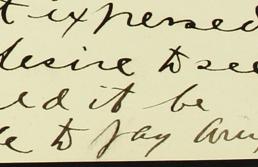 t expressed
desire to see
ed it be
to pay any